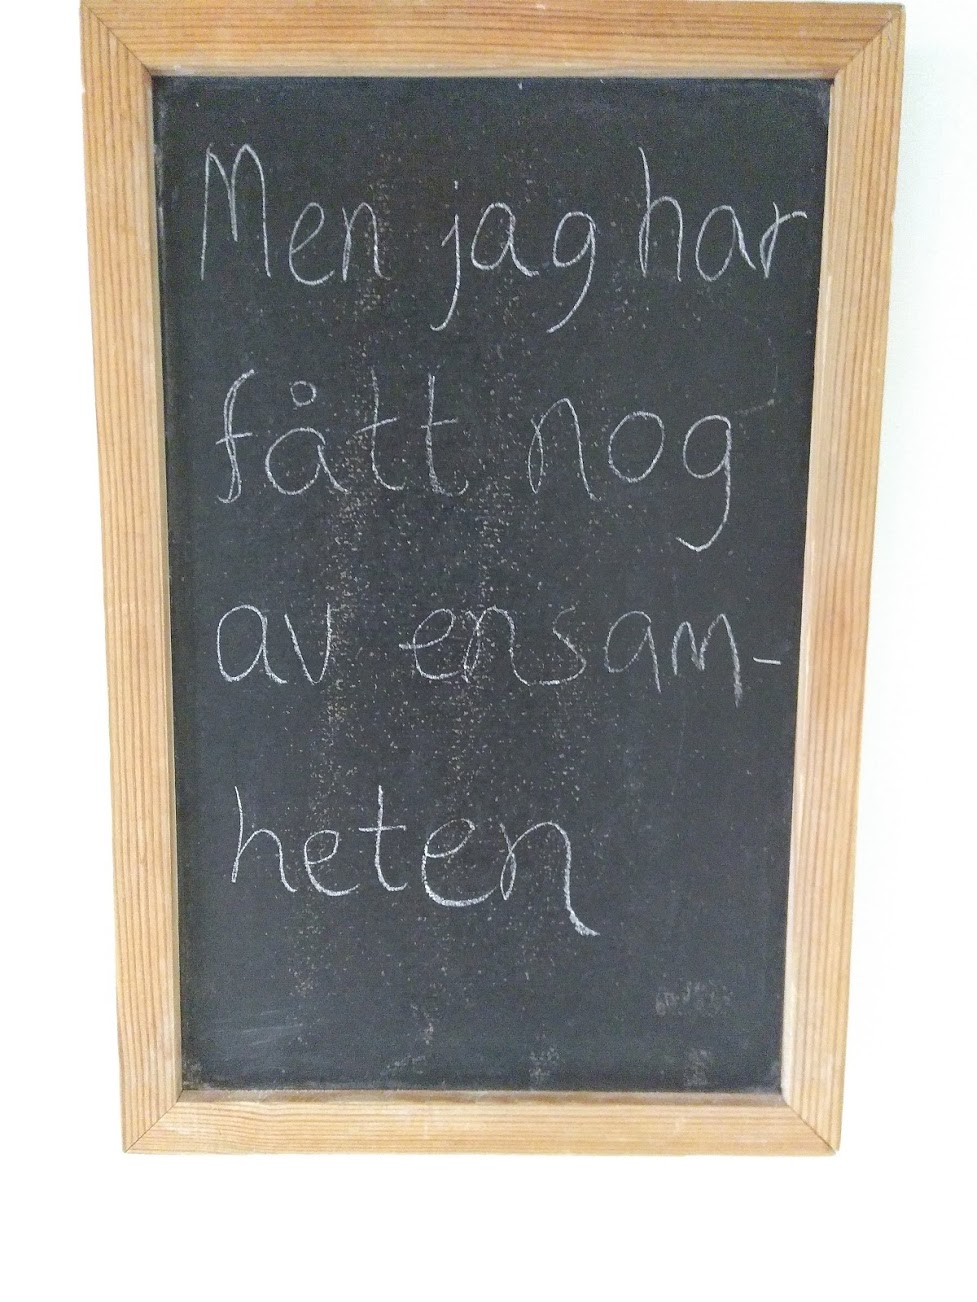 Men jag har
fått nog
av ensam-
heten